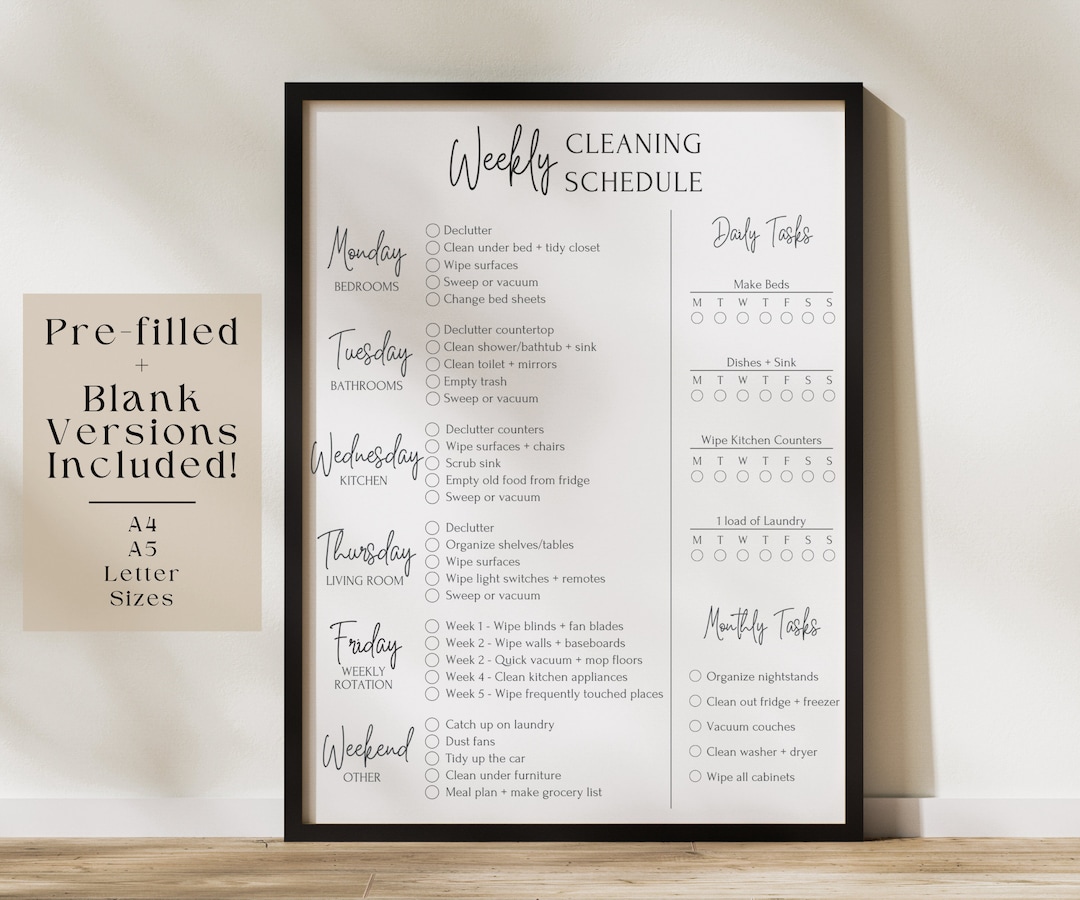 Pre-filled
+
Blank
Versions
Included!
A4
A5
Letter
Sizes
Weekly CLEANING
SCHEDULE
Monday
BEDROOMS
Declutter
Clean under bed + tidy closet
Wipe surfaces
Sweep or vacuum
Change bed sheets
Tuesday
BATHROOMS
Declutter countertop
Clean shower/bathtub + sink
Clean toilet + mirrors
Empty trash
Sweep or vacuum
Wednesday
KITCHEN
Declutter counters
Wipe surfaces + chairs
Scrub sink
Empty old food from fridge
Sweep or vacuum
Thursday
LIVING ROOM
Declutter
Organize shelves/tables
Wipe surfaces
Wipe light switches + remotes
Sweep or vacuum
Friday
WEEKLY
ROTATION
Week 1 - Wipe blinds + fan blades
Week 2 - Wipe walls + baseboards
Week 2 - Quick vacuum + mop floors
Week 4 - Clean kitchen appliances
Week 5 - Wipe frequently touched places
Weekend
OTHER
Catch up on laundry
Dust fans
Tidy up the car
Clean under furniture
Meal plan + make grocery list
Daily Tasks
Make Beds
M T W T F S S
Dishes + Sink
M T W T F S S
Wipe Kitchen Counters
M T W T F S S
1 load of Laundry
M T W T F S S
Monthly Tasks
Organize nightstands
Clean out fridge + freezer
Vacuum couches
Clean washer + dryer
Wipe all cabinets